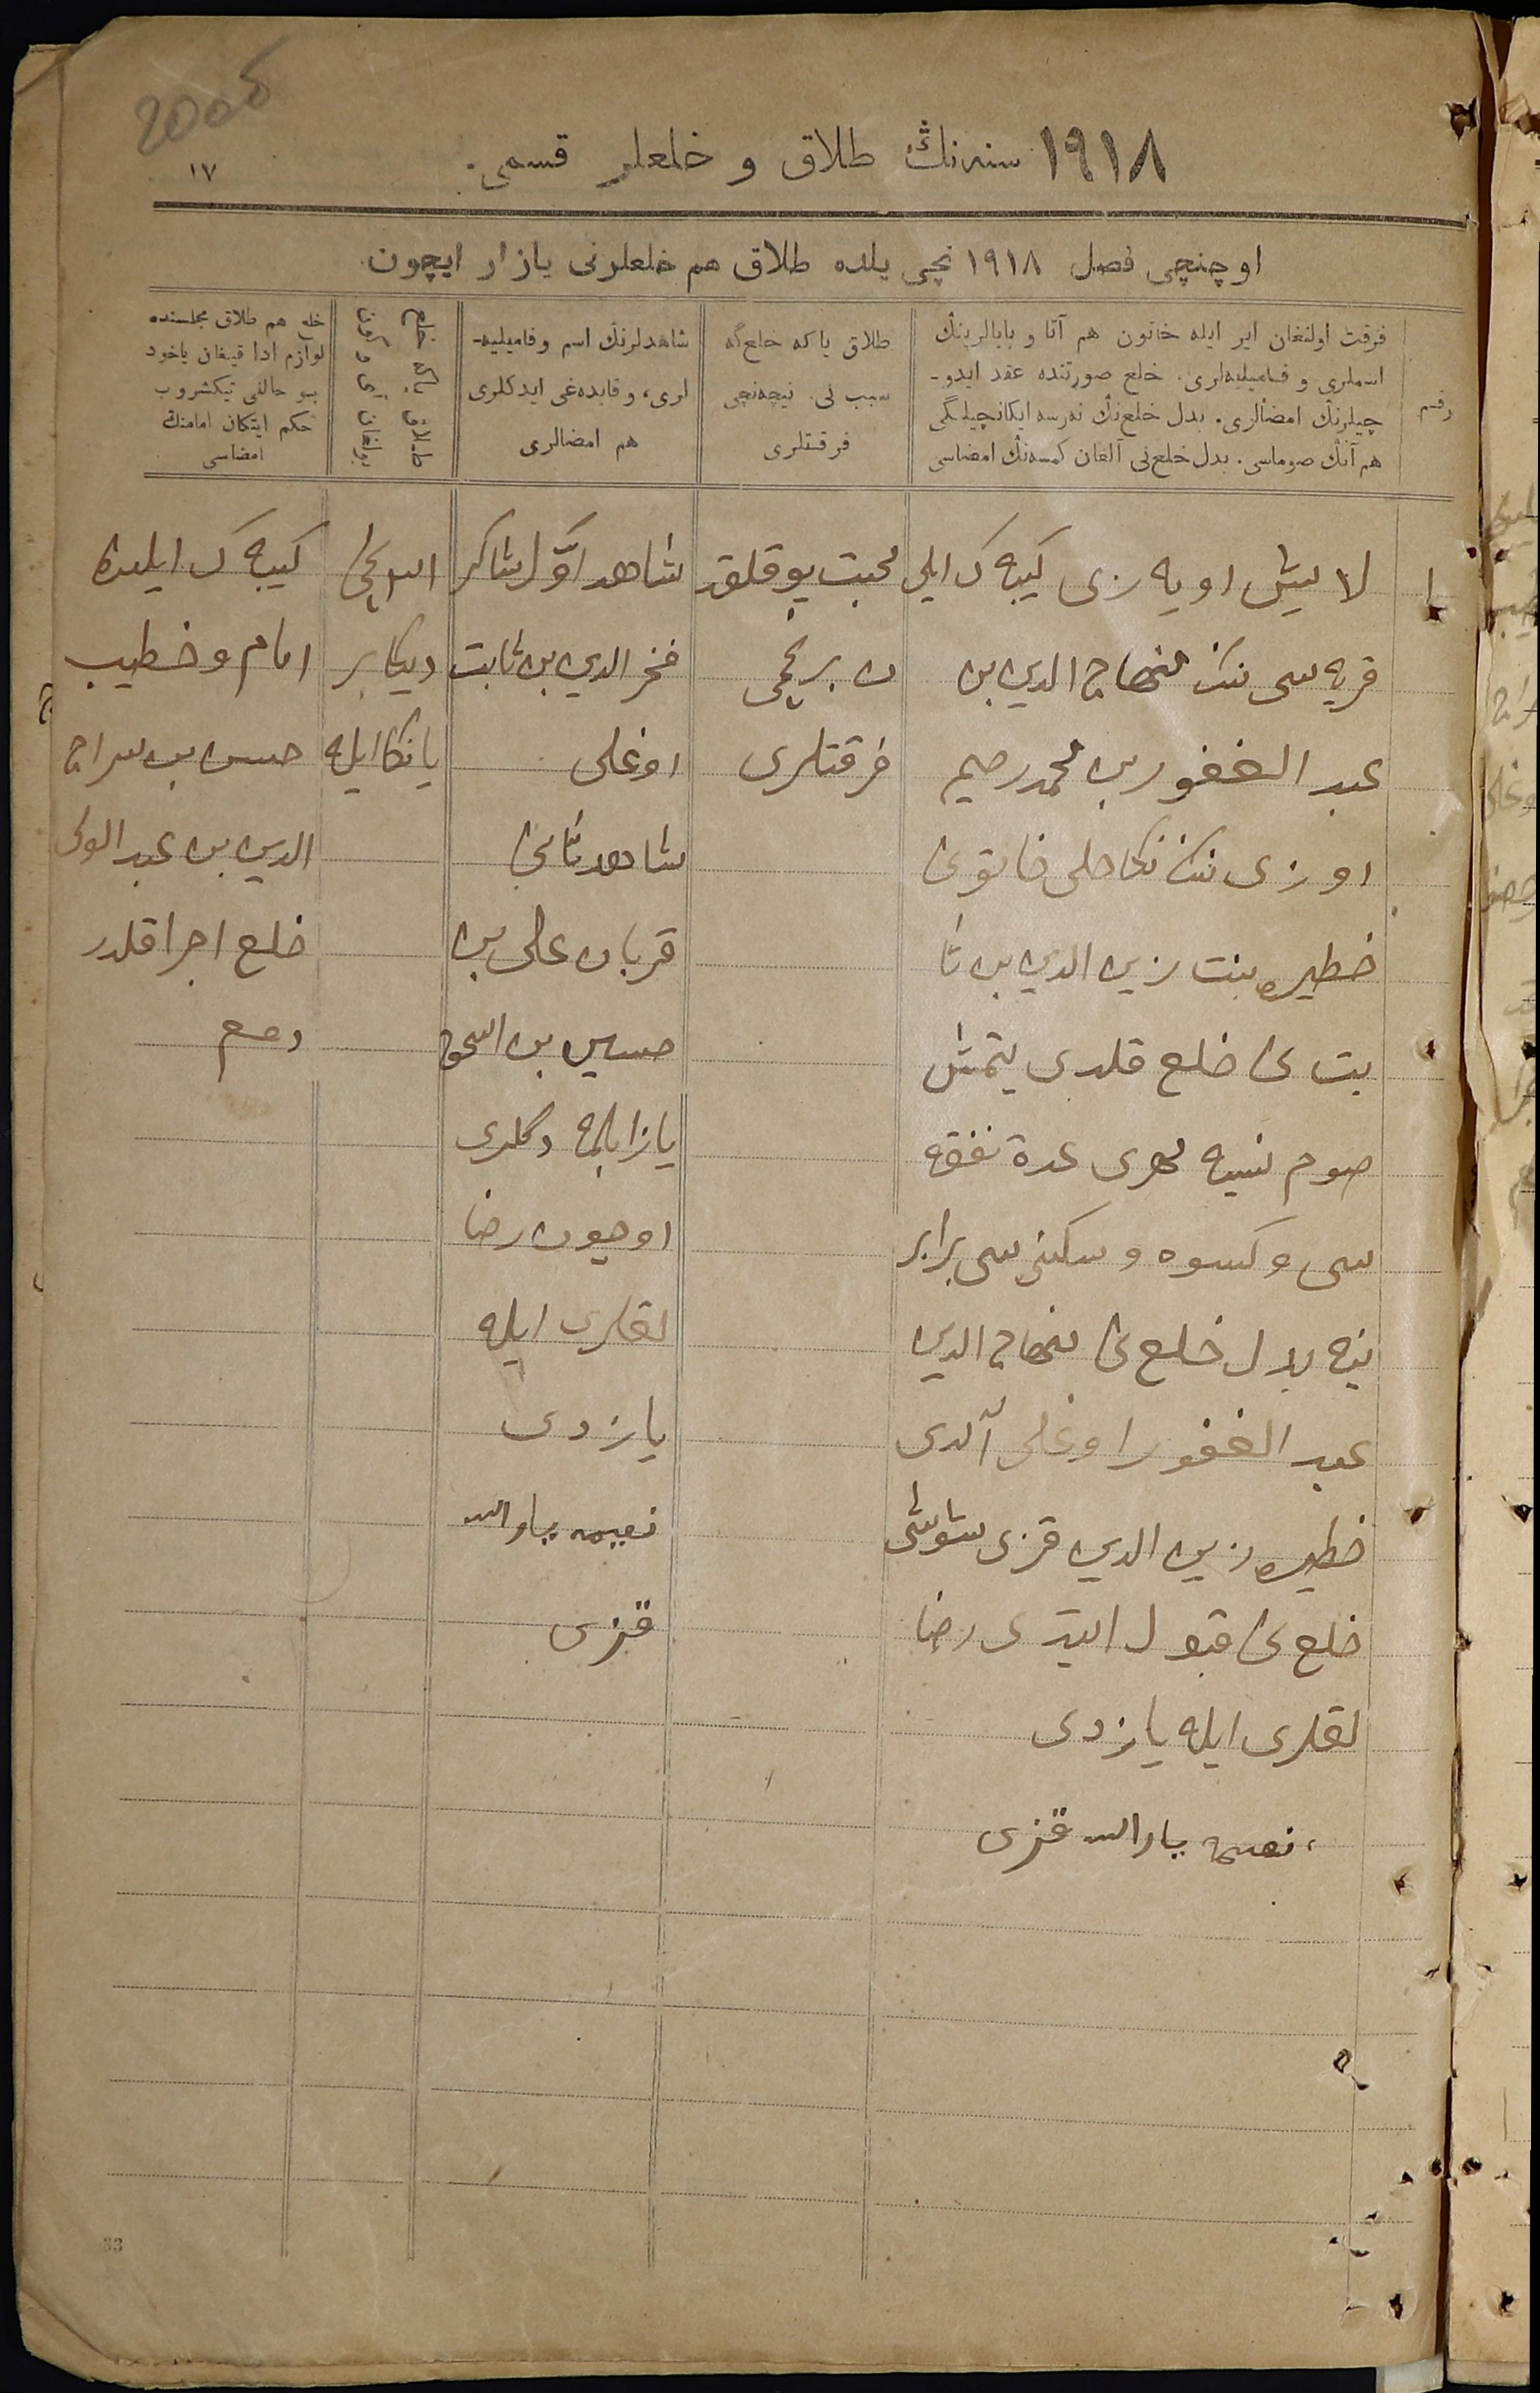 2005
١٧
١٩١٨ سنه‌نڭ طلاق و خلعلر قسمی.
اوچنچی فصل ١٩١٨ نچی یلده طلاق هم خلعلرنی یازار ایچون.
رقم
فرقت اولنغان ایر ایله خاتون هم آتا و بابالرینڭ
اسملری و فامیلیه‌لری. خلع صورتنده عقد ایدو-
چیلرنڭ امضالری. بدل خلع‌نڭ نه‌رسه ایکانچیلگی
هم آنڭ صوماسی. بدل خلع‌نی آلغان کمسه‌نڭ امضاسی
طلاق یا که خلع‌گه
سبب نی. نیچه‌نچی
فرقتلری
شاهدلرنڭ اسم و فامیلیه-
لری، و قایده‌غی ایدکلری
هم امضالری
طلاق یا که خلع
بولغان آی و کون
خلع هم طلاق مجلسنده
لوازم ادا قیلغان یاخود
بو حالنی تیکشروب
حکم ایتکان امامنڭ
امضاسی
١
لایش اویه زی کیبه ک ایلی
قریه سی ننک منهاج الدین بن
عبد الغفور بن محمد رحیم
اوزی ننک نکاحلی خاتونی
خطیره بنت زین الدین بن ثا
بت نی خلع قلدی یتمش
صوم نسیه مهری عدة نفقه
سی و کسوه و سکنی سی برابر
ینه بدل خلع نی منهاج الدین
عبد الغفور اوغلی آلدی
خطیره زین الدین قزی شوشی
خلع نی قبول ایتدی رضا
لقلری ایله یازدی
نعیمه یارالله قزی
محبت یوقلقد
ن برنچی
فرقتلری
شاهد اوّل شاکر
فخر الدین بن ثابت
اوغلی
شاهد ثانی
قربان علی بن
حسین بن اسحق
یازا بلمه دکلری
اوچون رضا
لقلری ایله
یازدی
نعیمه یارالله
قزی
دیکابر
یانکا ایله
کیبه ک ایلینک
امام و خطیب
حسن بن سراج
الدین بن عبد الولی
خلع اجرا قلدر
دم
33